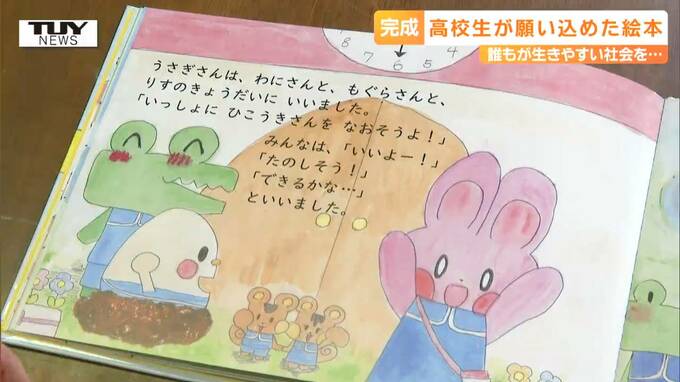 TUY
NEWS
完成
高校生が願い込めた絵本
誰もが生きやすい社会を…
8
7
6
5
4
うさぎさんは、わにさんと、もぐらさんと、
りすのきょうだいに いいました。
「いっしょに ひこうきさんを なおそうよ!」
みんなは、「いいよー!」
「たのしそう!」
「できるかな…」
といいました。